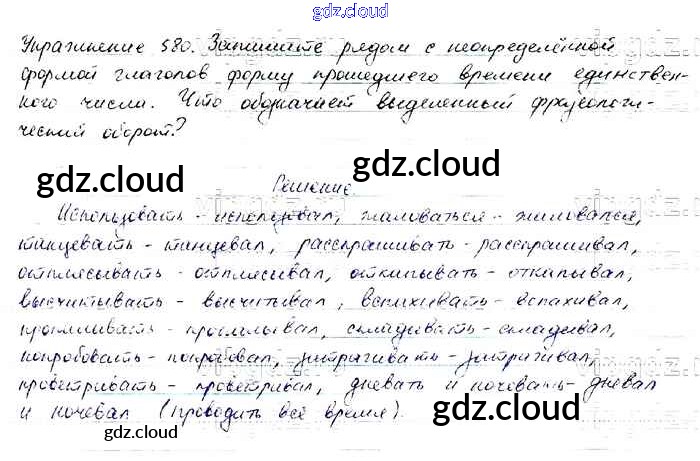 gdz.cloud
Упражнение 580. Запишите рядом с неопределённой
формой глаголов форму прошедшего времени единствен-
ного числа. Что обозначает выделенный фразеологи-
ческий оборот?
gdz.cloud
gdz.cloud
Решение
Использовать - использовал, жаловаться - жаловался,
танцевать - танцевал, расспрашивать - расспрашивал,
отплясывать - отплясывал, откапывать - откапывал,
высчитывать - высчитывал, вспахивать - вспахивал,
складывать - складывал,
попробовать - попробовал, затрагивать - затрагивал,
проветривать - проветривал, дневать и ночевать - дневал
и ночевал (проводить всё время).
gdz.cloud
gdz.cloud